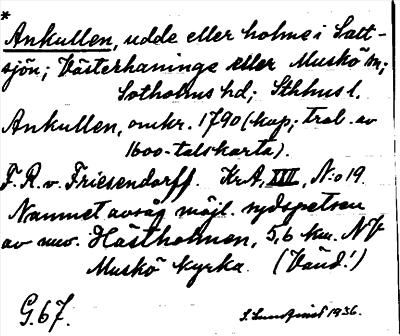 *
Ankullen, udde eller holme i Satt-
sjön; Västerhaninge eller Muskö sn;
Sotholms hd; Sthlms l.
Ankullen, omkr. 1790 (kop; trol. av
1600-talskarta).
F. R. v. Friesendorff. KrA, XIII, N:o 19.
Namnet avsåg möjl. sydspetsen
av nuv. Hästholmen, 5,6 km. NV
Muskö kyrka. (Vänd!)
G. 67.
1936.